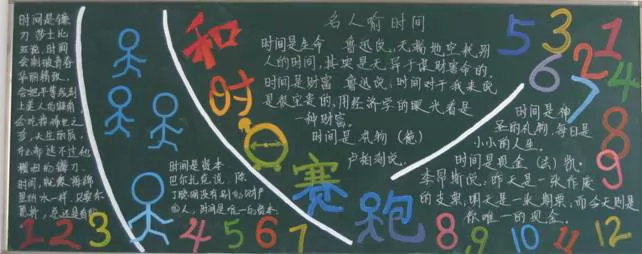 时间是镰
刀 莎士比
亚说，时间
会刺破青春
华丽精致，
会把平等线刻
上美人的额角
会吃掉稀世之
珍，天生丽质，
什么都逃不过他
横扫的镰刀。
时间，就像海绵
里的水一样，只要你
愿挤，总还是有的
和时
赛跑
时间是资本
巴尔扎克说
时间是
名人喻时间
时间是生命 鲁迅说，无端地空耗别
人的时间，其实是无异于谋财害命的。
时间是财富 鲁迅说：时间对于我来说
是很宝贵的，用经济学的眼光看是
一种财富。
时间是礼物（德）
卢
时间是神
圣的礼物 每日是
小小的人生。
时间是现金（法）凯
李昂斯说：昨天是一张作废
的支票，明天是一张期票，而今天则是
你唯一的现金。
5 3 1
6 2 4
7 8
9
1 2 3 4 5 6 7 8 9 10 11 12